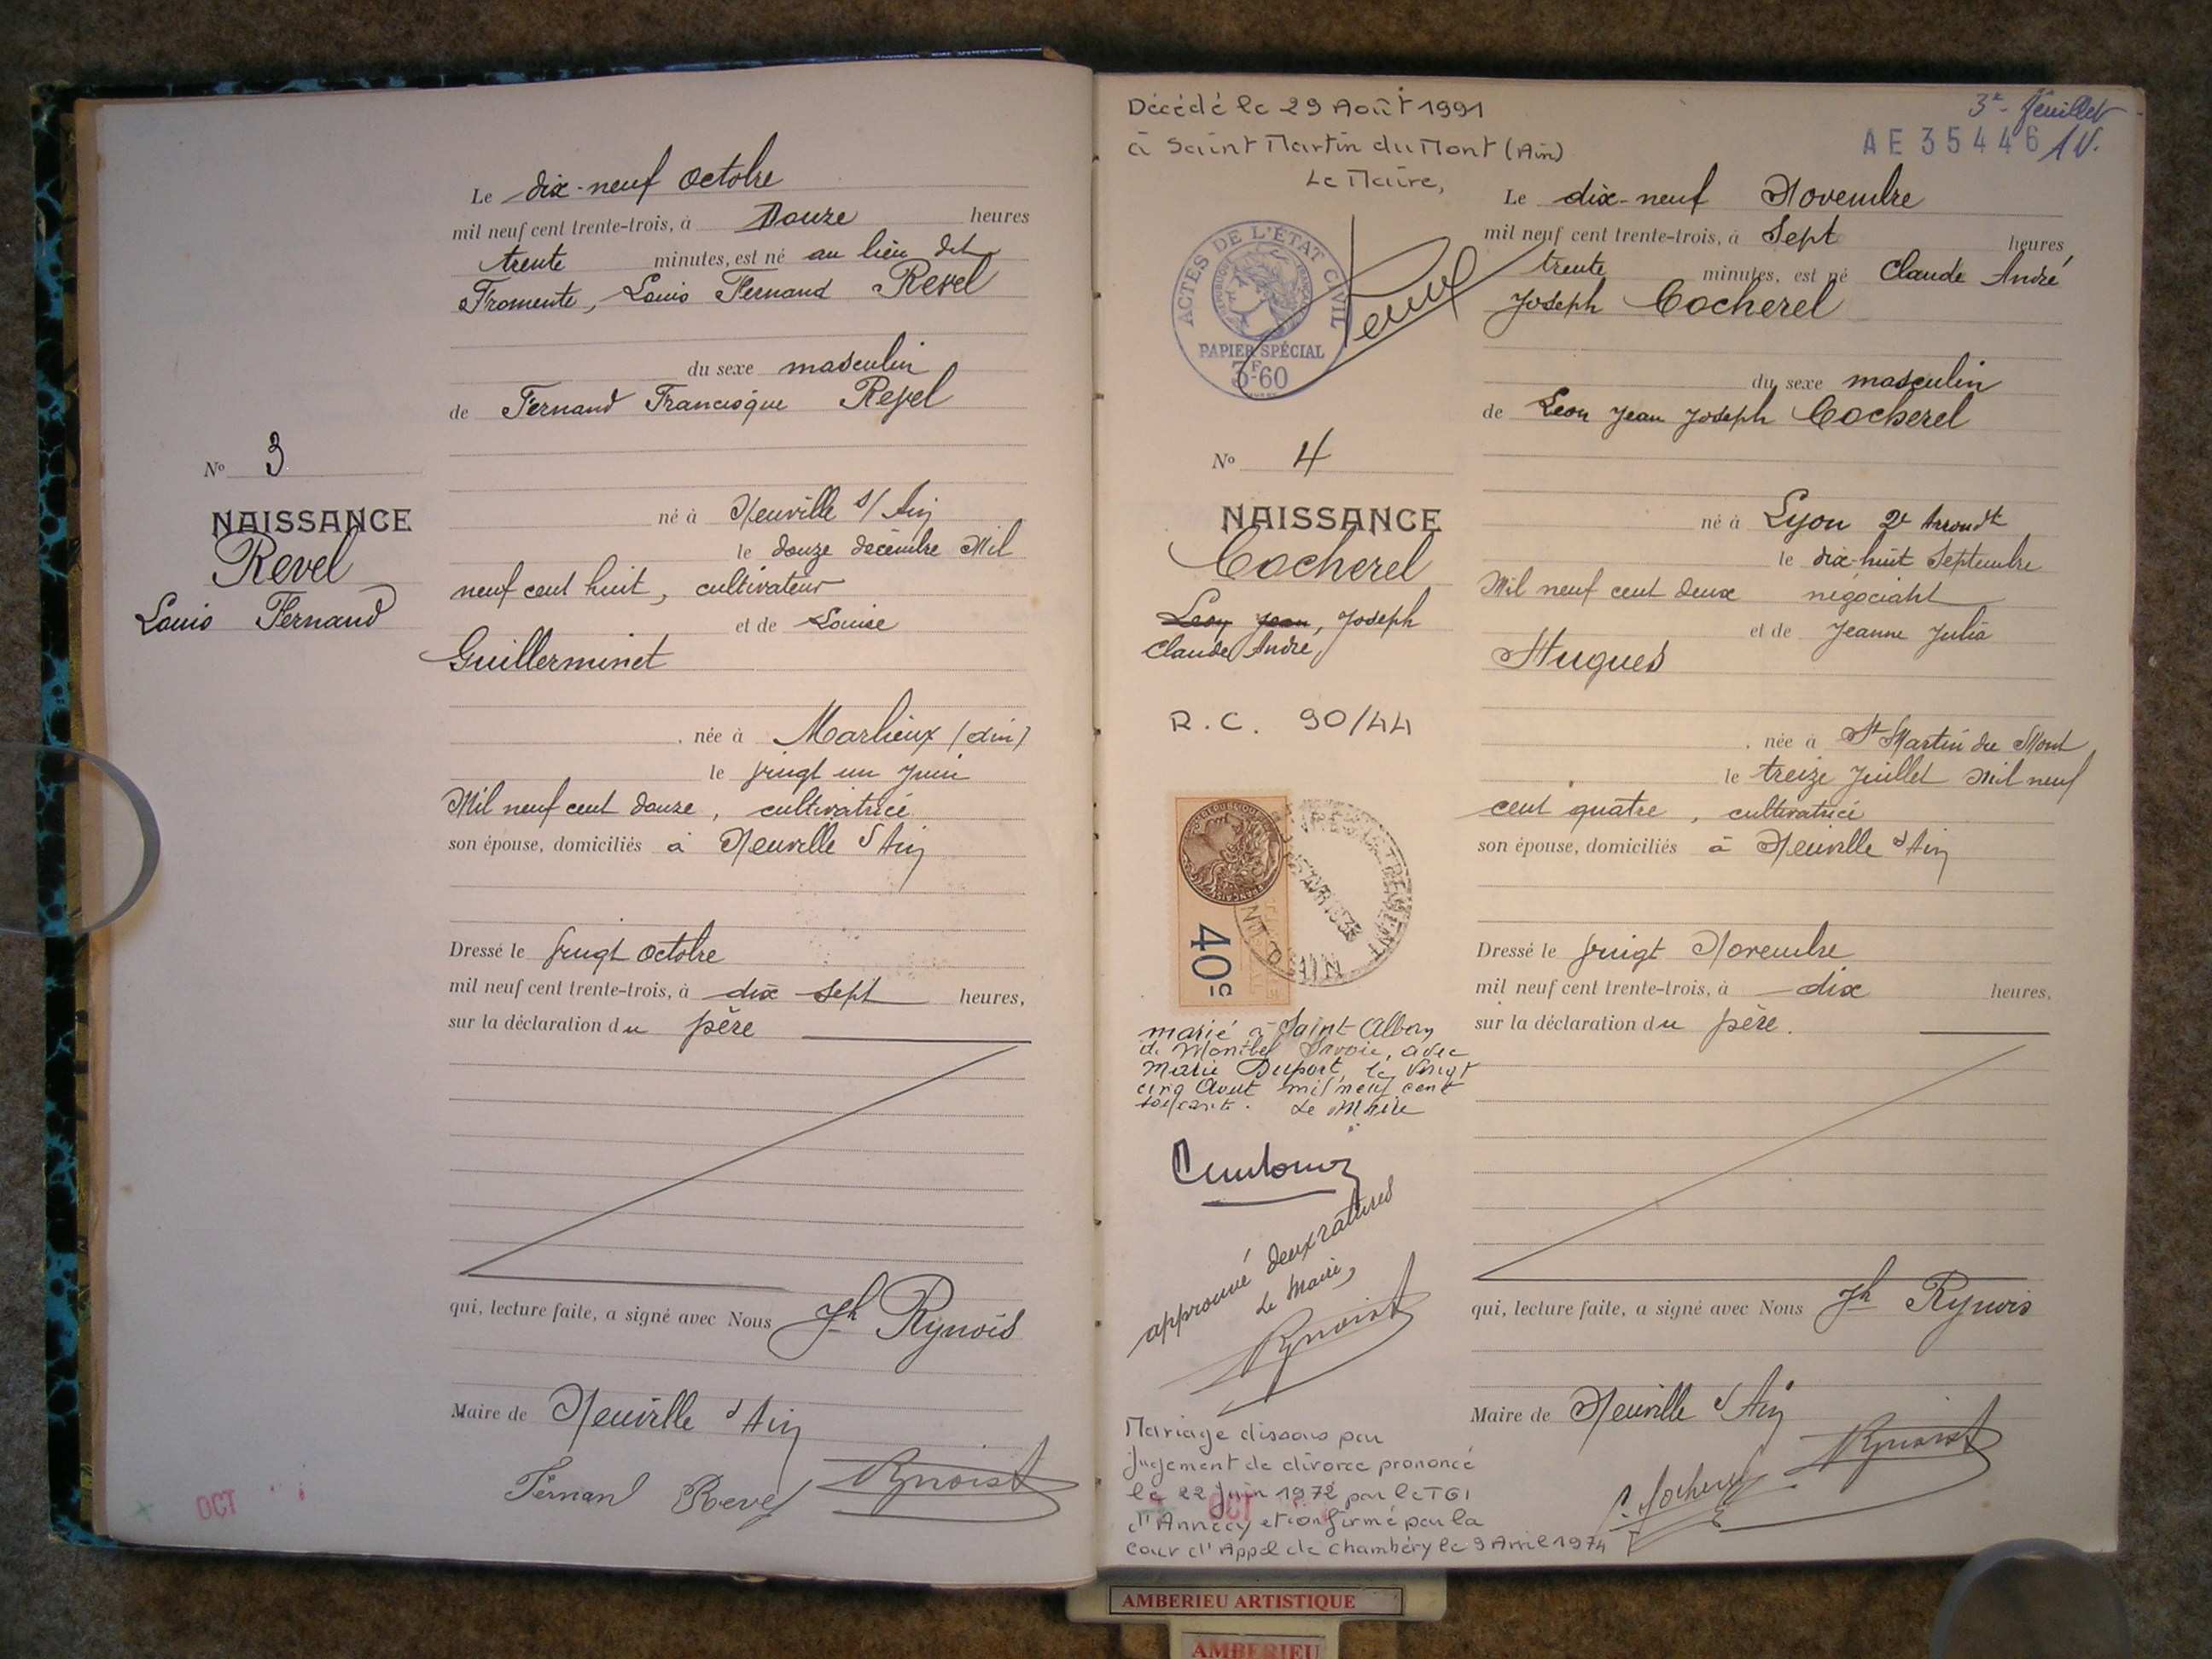 Le dix-neuf Octobre
mil neuf cent trente-trois, à Douze heures
trente minutes, est né au lieu dit
Fromente, Louis Fernand Revel
du sexe masculin
de Fernand Francisque Revel
N° 3
NAISSANCE
Revel
Louis Fernand
né à Neuville s/ Ain
le douze décembre Mil
neuf cent huit, cultivateur
et de Louise
Guillerminet
, née à Marlieux (Ain)
le vingt un Juin
Mil neuf cent douze, cultivatrice
son épouse, domiciliés à Neuville s/ Ain
Dressé le vingt Octobre
mil neuf cent trente-trois, à dix sept heures,
sur la déclaration du père
qui, lecture faite, a signé avec Nous Jh Rynois
Maire de Neuville s/ Ain
Fernand Revel
OCT
Décédé le 29 Août 1991
à Saint Martin du Mont (Ain)
Le Maire,
3e feuillet
AE 35446
ACTES DE L'ÉTAT CIVIL
PAPIER SPÉCIAL
3F60
Le dix-neuf Novembre
mil neuf cent trente-trois, à Sept heures
trente minutes, est né Claude André
Joseph Cocherel
du sexe masculin
de Leon Jean Joseph Cocherel
N° 4
NAISSANCE
Cocherel
Leon Jean, Joseph
Claude André,
R.C. 90/44
né à Lyon 2e Arrondt
le dix-huit Septembre
Mil neuf cent deux négociant
et de Jeanne Julia
Hugues
, née à St Martin du Mont
le treize Juillet Mil neuf
cent quatre, cultivatrice
son épouse, domiciliés à Neuville s/ Ain
40c
Dressé le vingt Novembre
mil neuf cent trente-trois, à dix heures,
sur la déclaration du père.
marié à Saint-Alban
de Montbel Savoie, avec
Marie Duport, le Vingt
cinq Aout mil neuf cent
soixante. Le Maire
approuvé deux ratures
Le Maire,
qui, lecture faite, a signé avec Nous Jh Rynois
Maire de Neuville s/ Ain
Mariage dissous par
Jugement de divorce prononcé
le 22 Juin 1972 par le TGI
d'Annecy et confirmé par la
Cour d'Appel de Chambéry le 9 Avril 1974
OCT
AMBERIEU ARTISTIQUE
AMBERIEU